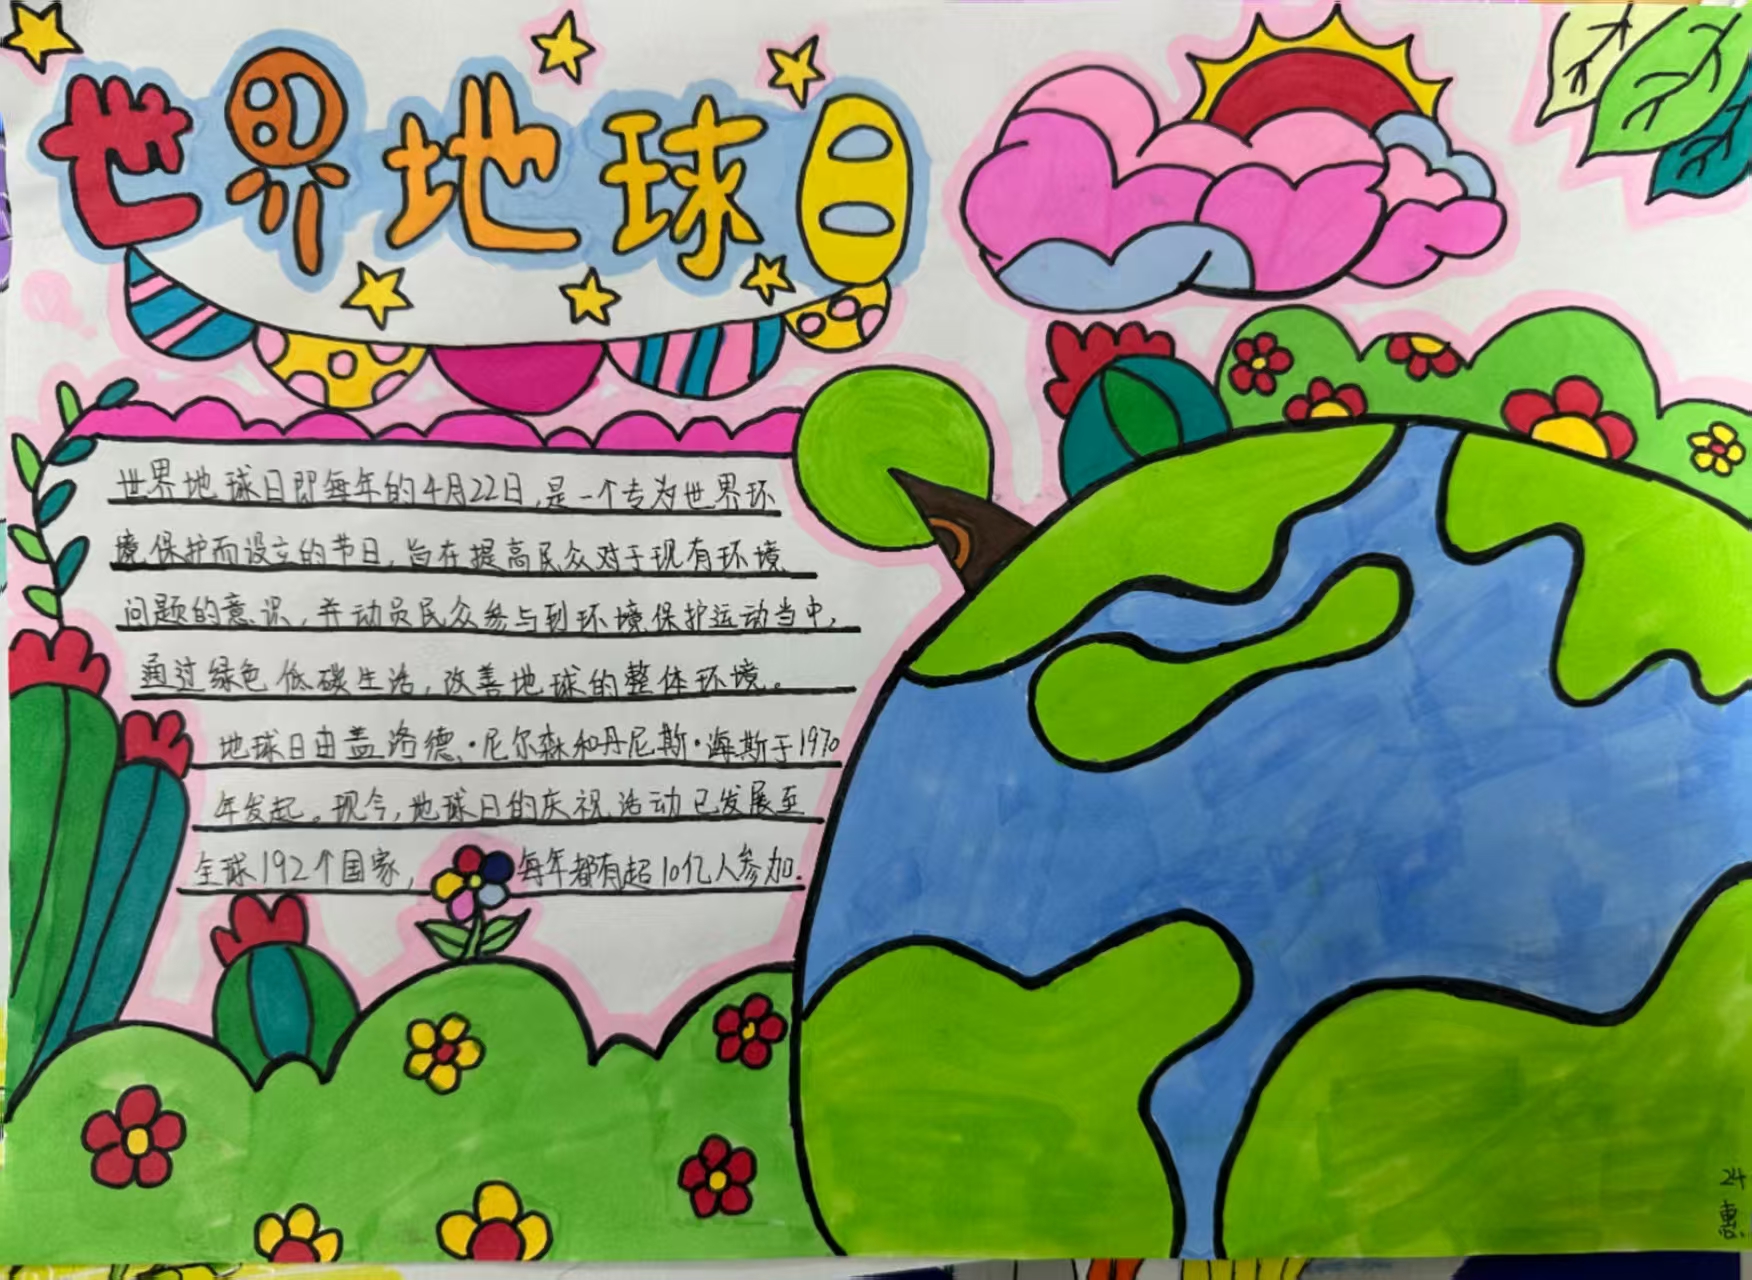 世界地球日
世界地球日即每年的4月22日,是一个专为世界环
境保护而设立的节日,旨在提高民众对于现有环境
问题的意识,并动员民众参与到环境保护运动当中,
通过绿色低碳生活,改善地球的整体环境。
地球日由盖洛德·尼尔森和丹尼斯·海斯于1970
年发起。现今,地球日的庆祝活动已发展至
全球192个国家,每年都有超10亿人参加.
24
惠